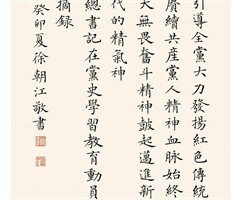 引導全黨大力發揚紅色傳統
賡續共產黨人精神血脉始終
大無畏奮斗精神鼓起邁進新
代的精氣神
總書記在黨史學習教育動員
摘録
癸卯夏徐朝江敬書